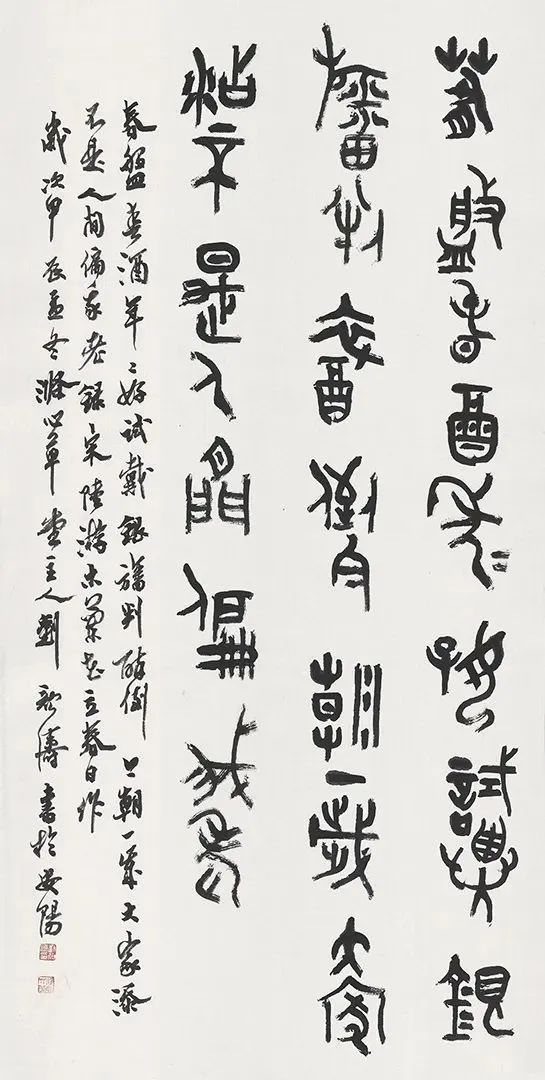 春盤春酒年〻好試戴銀
旛判醉倒今朝一歲大家
添不是人間偏我老
春盤春酒年〻好試戴銀旛判醉倒今朝一歲大家添
不是人間偏我老錄宋陸游木蘭花立春日作
歲次甲辰孟冬滌心草堂主人劉顏濤書於安陽